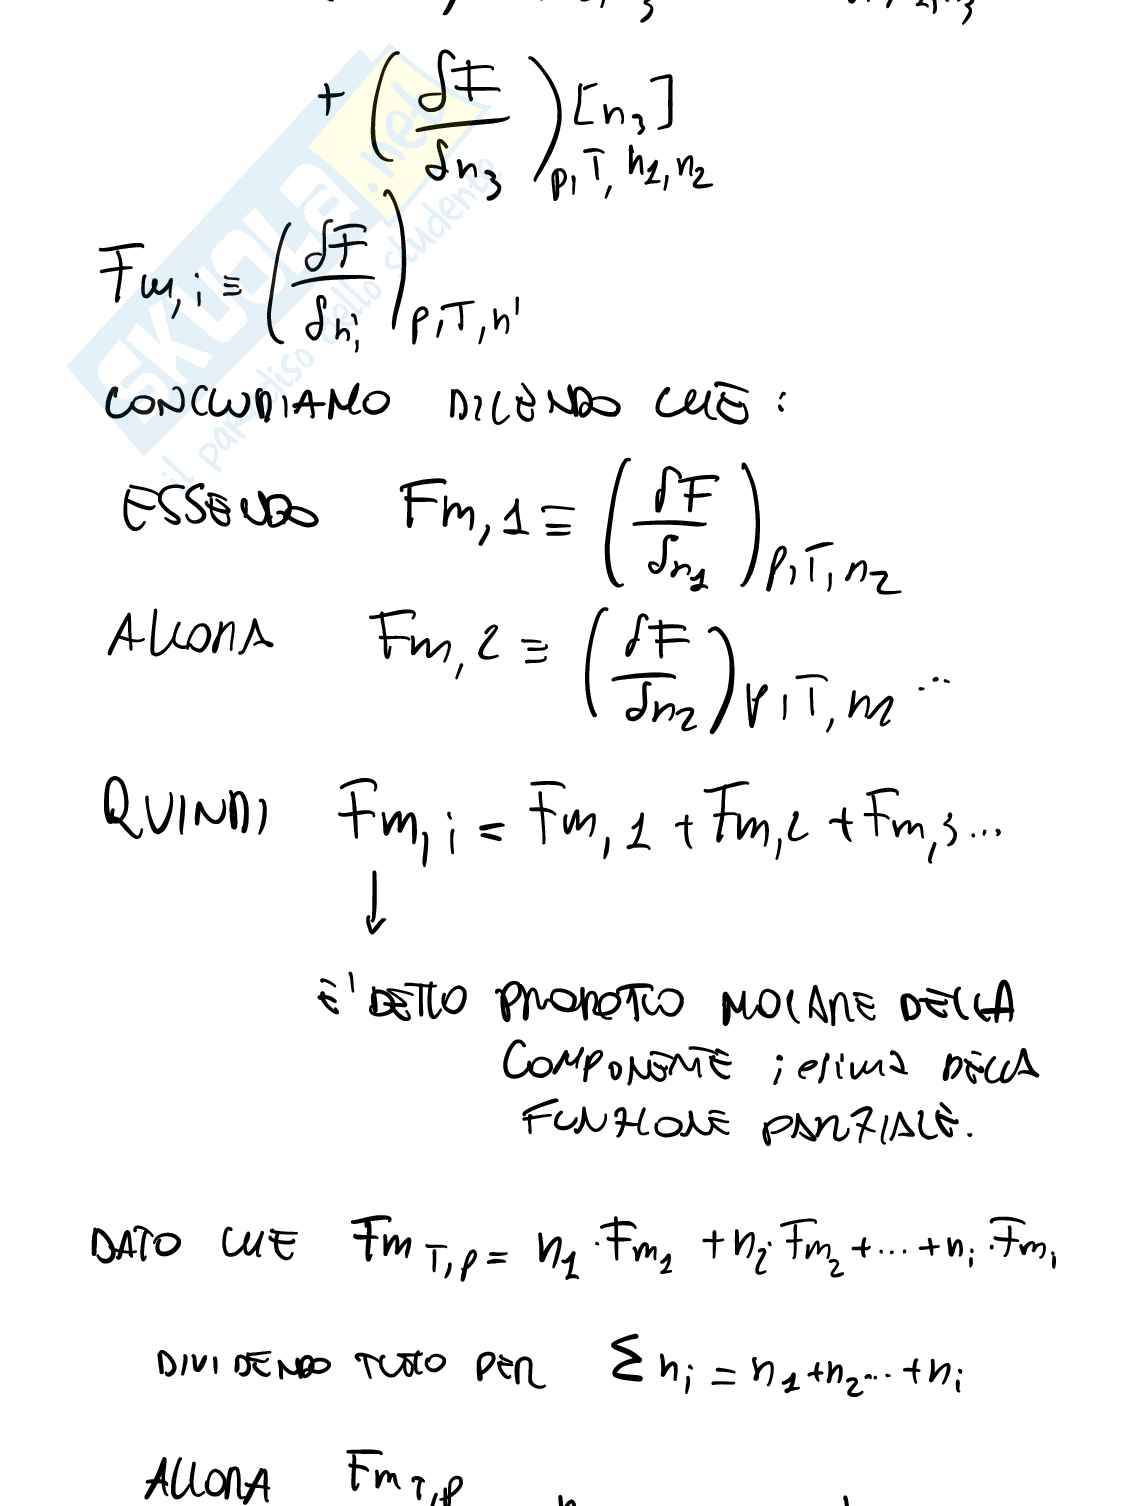 + (δF/δn3)p,T,n1,n2 [n3]
Fm,i ≡ (δF/δni)p,T,n'
CONCLUDIAMO DICENDO CHE:
ESSENDO Fm,1 ≡ (δF/δn1)p,T,n2
ALLORA Fm,2 ≡ (δF/δn2)p,T,n1 ...
QUINDI Fm,i = Fm,1 + Fm,2 + Fm,3...
↓
E' DETTO PRODOTTO MOLARE DELLA
COMPONENTE iesima DELLA
FUNZIONE PARZIALE.
DATO CHE Fm T,p = n1·Fm1 + n2·Fm2 + ... + ni·Fmi
DIVIDENDO TUTTO PER Σni = n1+n2...+ni
ALLORA Fm T,p
SKUOLA.net
il paradiso dello studente